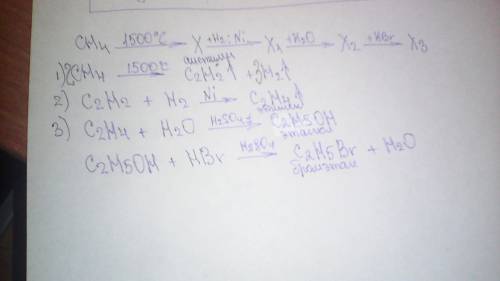 CH4 1500°C → X +H2; Ni → X1 +H2O → X2 +HBr → X3
ацетилен
1) 2CH4 1500°C → C2H2↑ + 3H2↑
2) C2H2 + H2 Ni → C2H4↑
этилен
3) C2H4 + H2O H2SO4 → C2H5OH
этанол
C2H5OH + HBr H2SO4 → C2H5Br + H2O
бромэтан